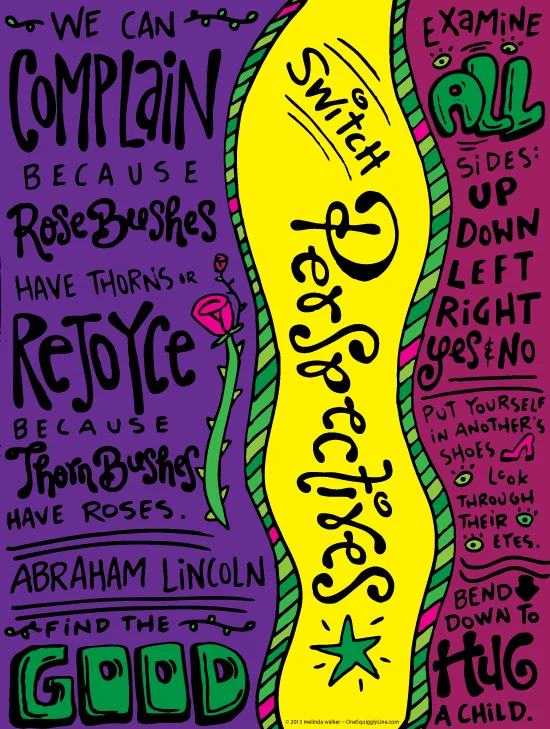 WE CAN
COMPLaiN
BECAUSE
RoseBushes
HAVE THORNS OR
ReJOYCe
BECAUSE
ThornBushes
HAVE ROSES.
ABRAHAM LiNCOLN
FiND THE
GOOD
SWitCH
Perspectives
EXaMiNE
ALL
SiDES:
UP
DOWN
LEFT
RiGHT
yes & NO
PUT YOURSELF
iN ANOTHER'S
SHOES
Look
THROUGH
THEiR
EYES.
BEND
DOWN TO
HUG
A CHiLD.
© 2013 melinda walker ~ OneSquigglyLine.com